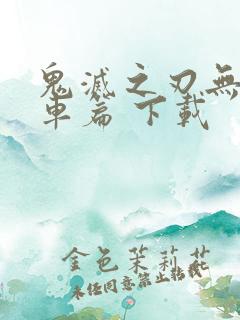 鬼滅之刃無
車篇 下載
金色茉莉花
未经同意禁止转载